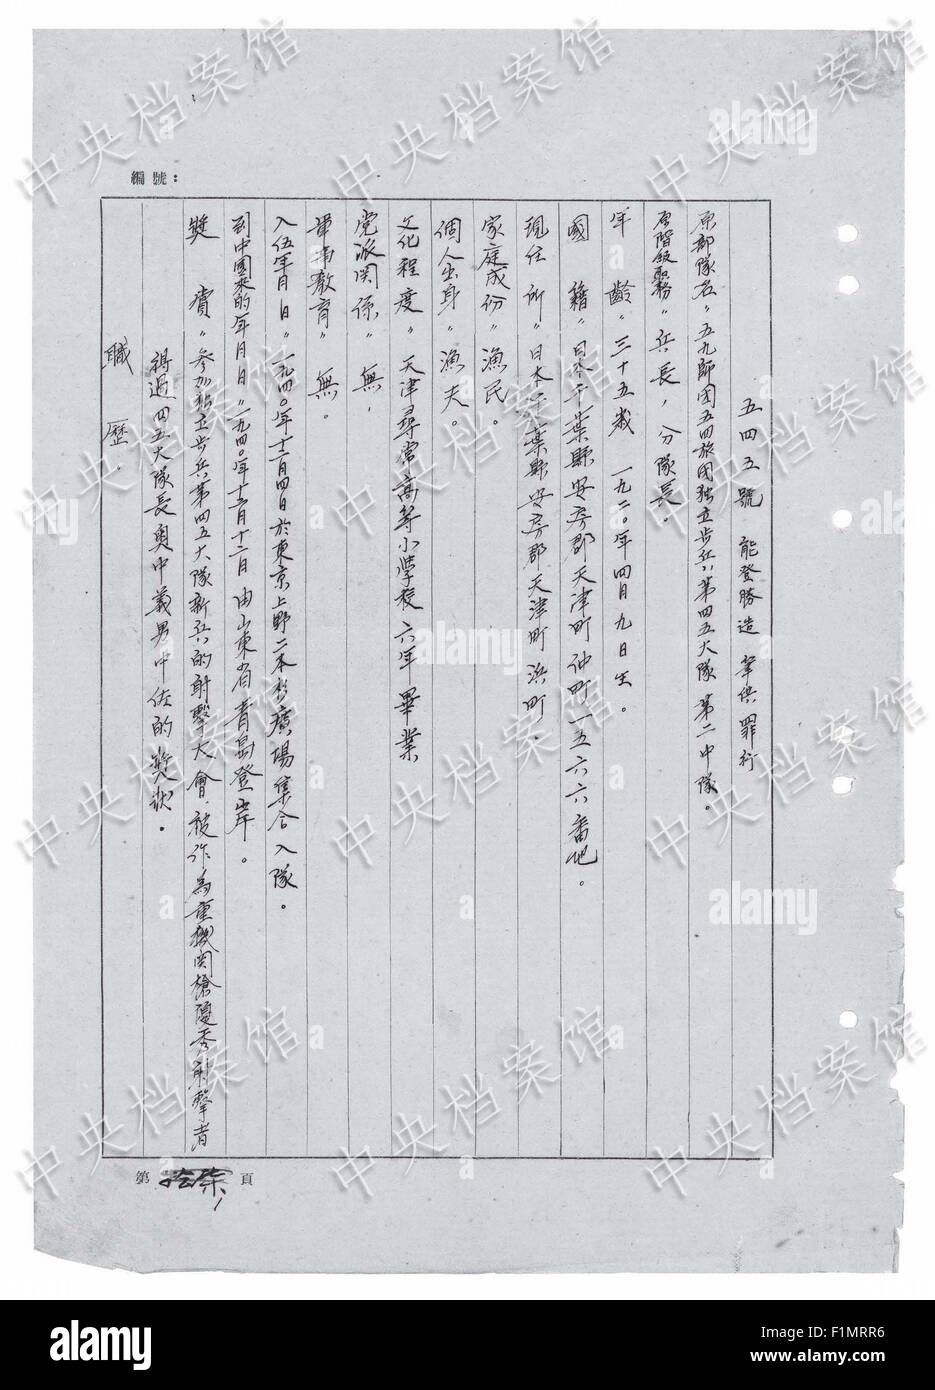 編號：
五四五號 能登勝造 筆供罪行
原部隊名〃五九師団五四旅団独立步兵第四五大隊第二中隊。
原階級職務〃兵長，分隊長。
年齡〃三十五歲 一九二〇年四月九日生。
國籍〃日本千葉縣安房郡天津町仲町一五六六番地。
現住所〃日本千葉縣安房郡天津町浜町。
家庭成份〃漁民。
個人出身〃漁夫。
文化程度〃天津尋常高等小学校六年畢業
党派関係〃無，
教育〃無。
入伍年月日〃一九四〇年十二月四日於東京上野二本杉廣場集合入隊。
到中國來的年月日〃一九四〇年十二月十二日由山東省青島登岸。
獎賞〃参加独立步兵第四五大隊新兵的射擊大會，被作為重機関槍優秀射擊者
得過四五大隊長奥中義男中佐的獎狀。
職歷。
第 柒 頁
中央档案馆
alamy
alamy
Image ID: F1MRR6
www.alamy.com